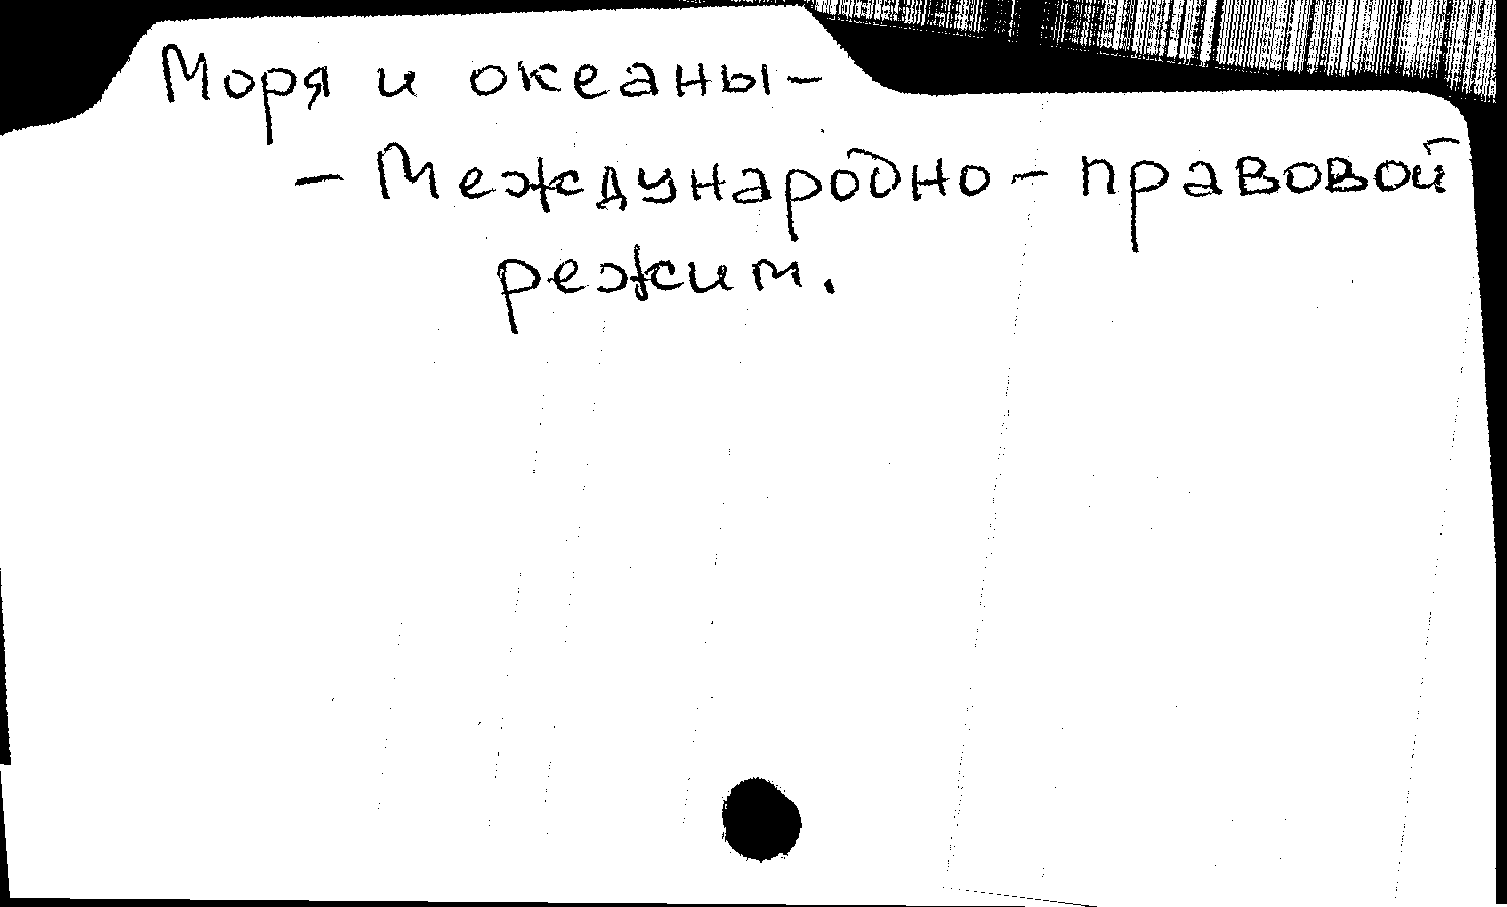 Моря и океаны-
- Международно - правовой
режим.